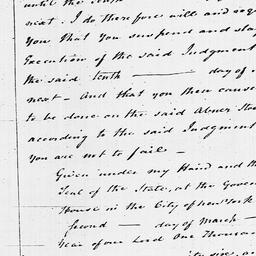 until the tenth
next. I do therefore will and req
You that You suspend and stay
Execution of the said Judgment
the said tenth — day of
next – And that you then cause
to be done on the said Abner
according to the said Judgment
You are not to fail –
Given under my Hand and the
Seal of the State, at the Govern
House in the City of New York
second — day of March —
Year of our Lord One Thousan